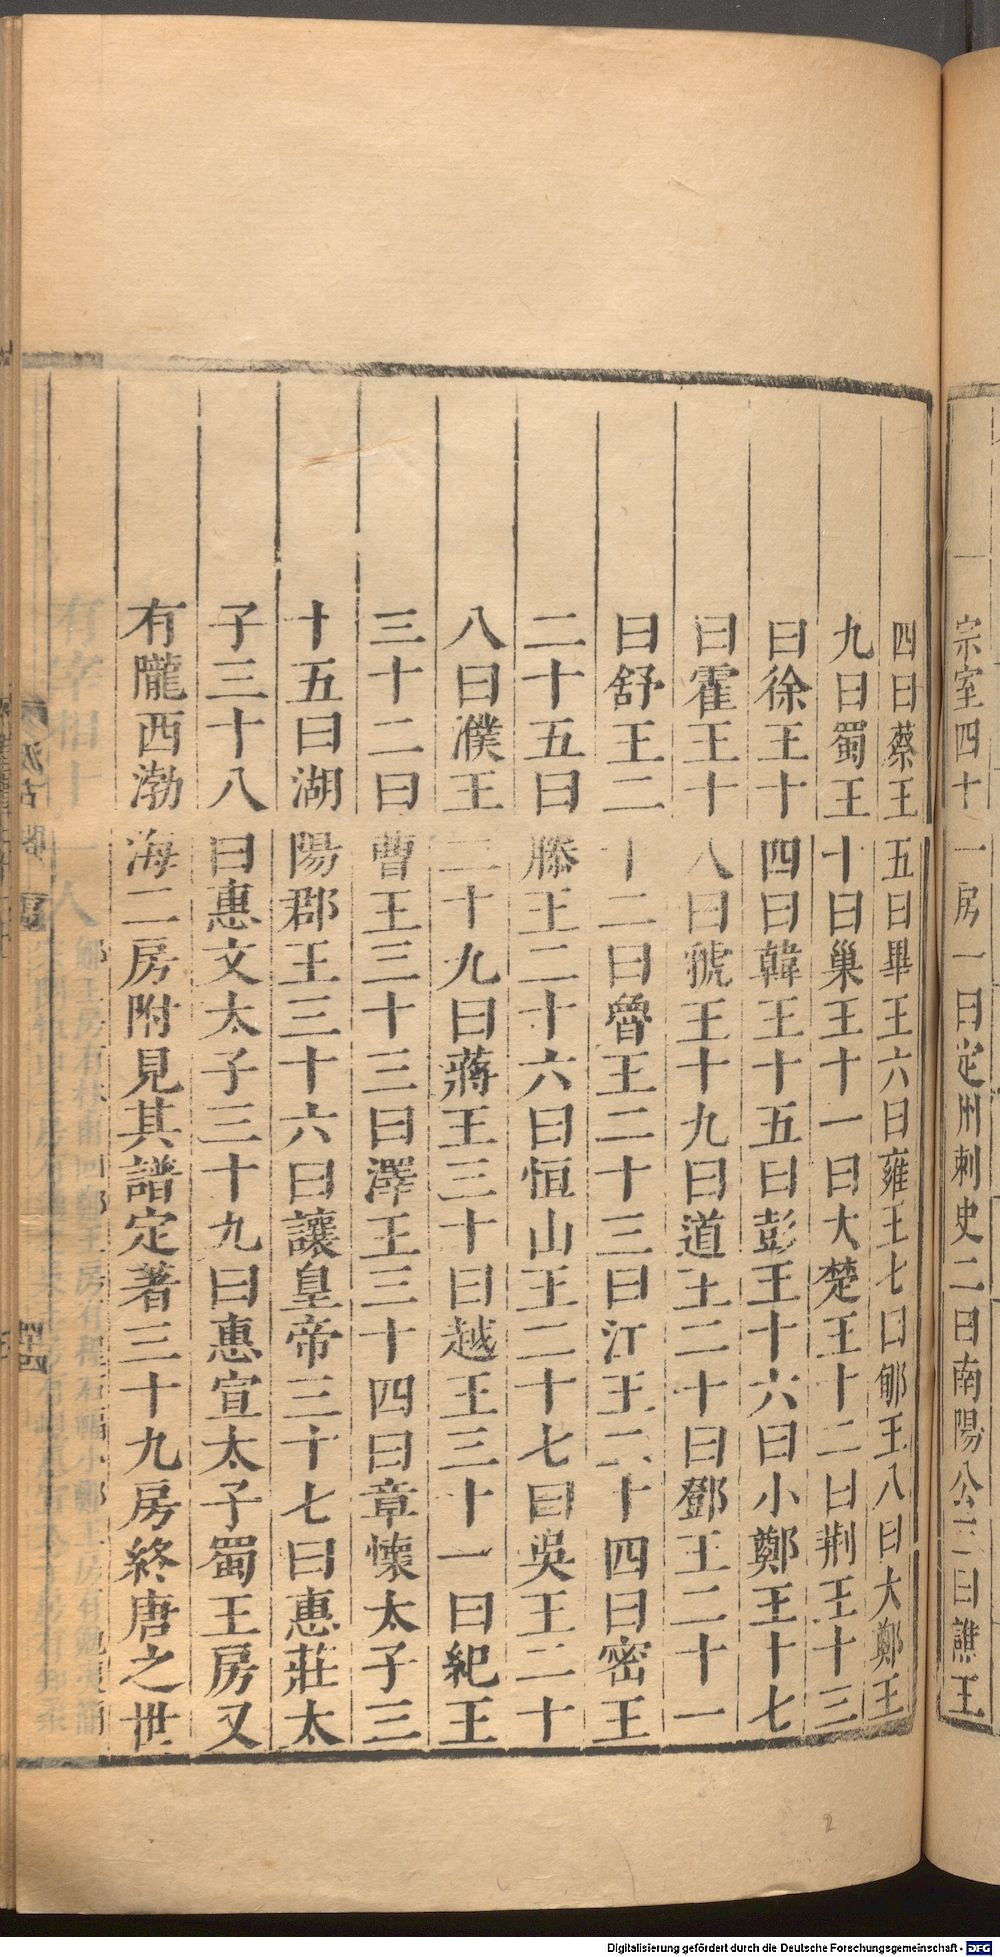 宗室四十一房一曰定州刺史二曰南陽公三曰譙王
四曰蔡王五曰畢王六曰雍王七曰郇王八曰大鄭王
九曰蜀王十曰巢王十一曰大楚王十二曰荆王十三
曰徐王十四曰韓王十五曰彭王十六曰小鄭王十七
曰霍王十八曰虢王十九曰道王二十曰鄧王二十一
曰舒王二十二曰魯王二十三曰江王二十四曰密王
二十五曰滕王二十六曰恒山王二十七曰吳王二十
八曰濮王二十九曰蔣王三十曰越王三十一曰紀王
三十二曰曹王三十三曰澤王三十四曰章懷太子三
十五曰湖陽郡王三十六曰讓皇帝三十七曰惠莊太
子三十八曰惠文太子三十九曰惠宣太子蜀王房又
有隴西渤海二房附見其譜定著三十九房終唐之世
有宰相十一人
Digitalisierung gefördert durch die Deutsche Forschungsgemeinschaft - DFG